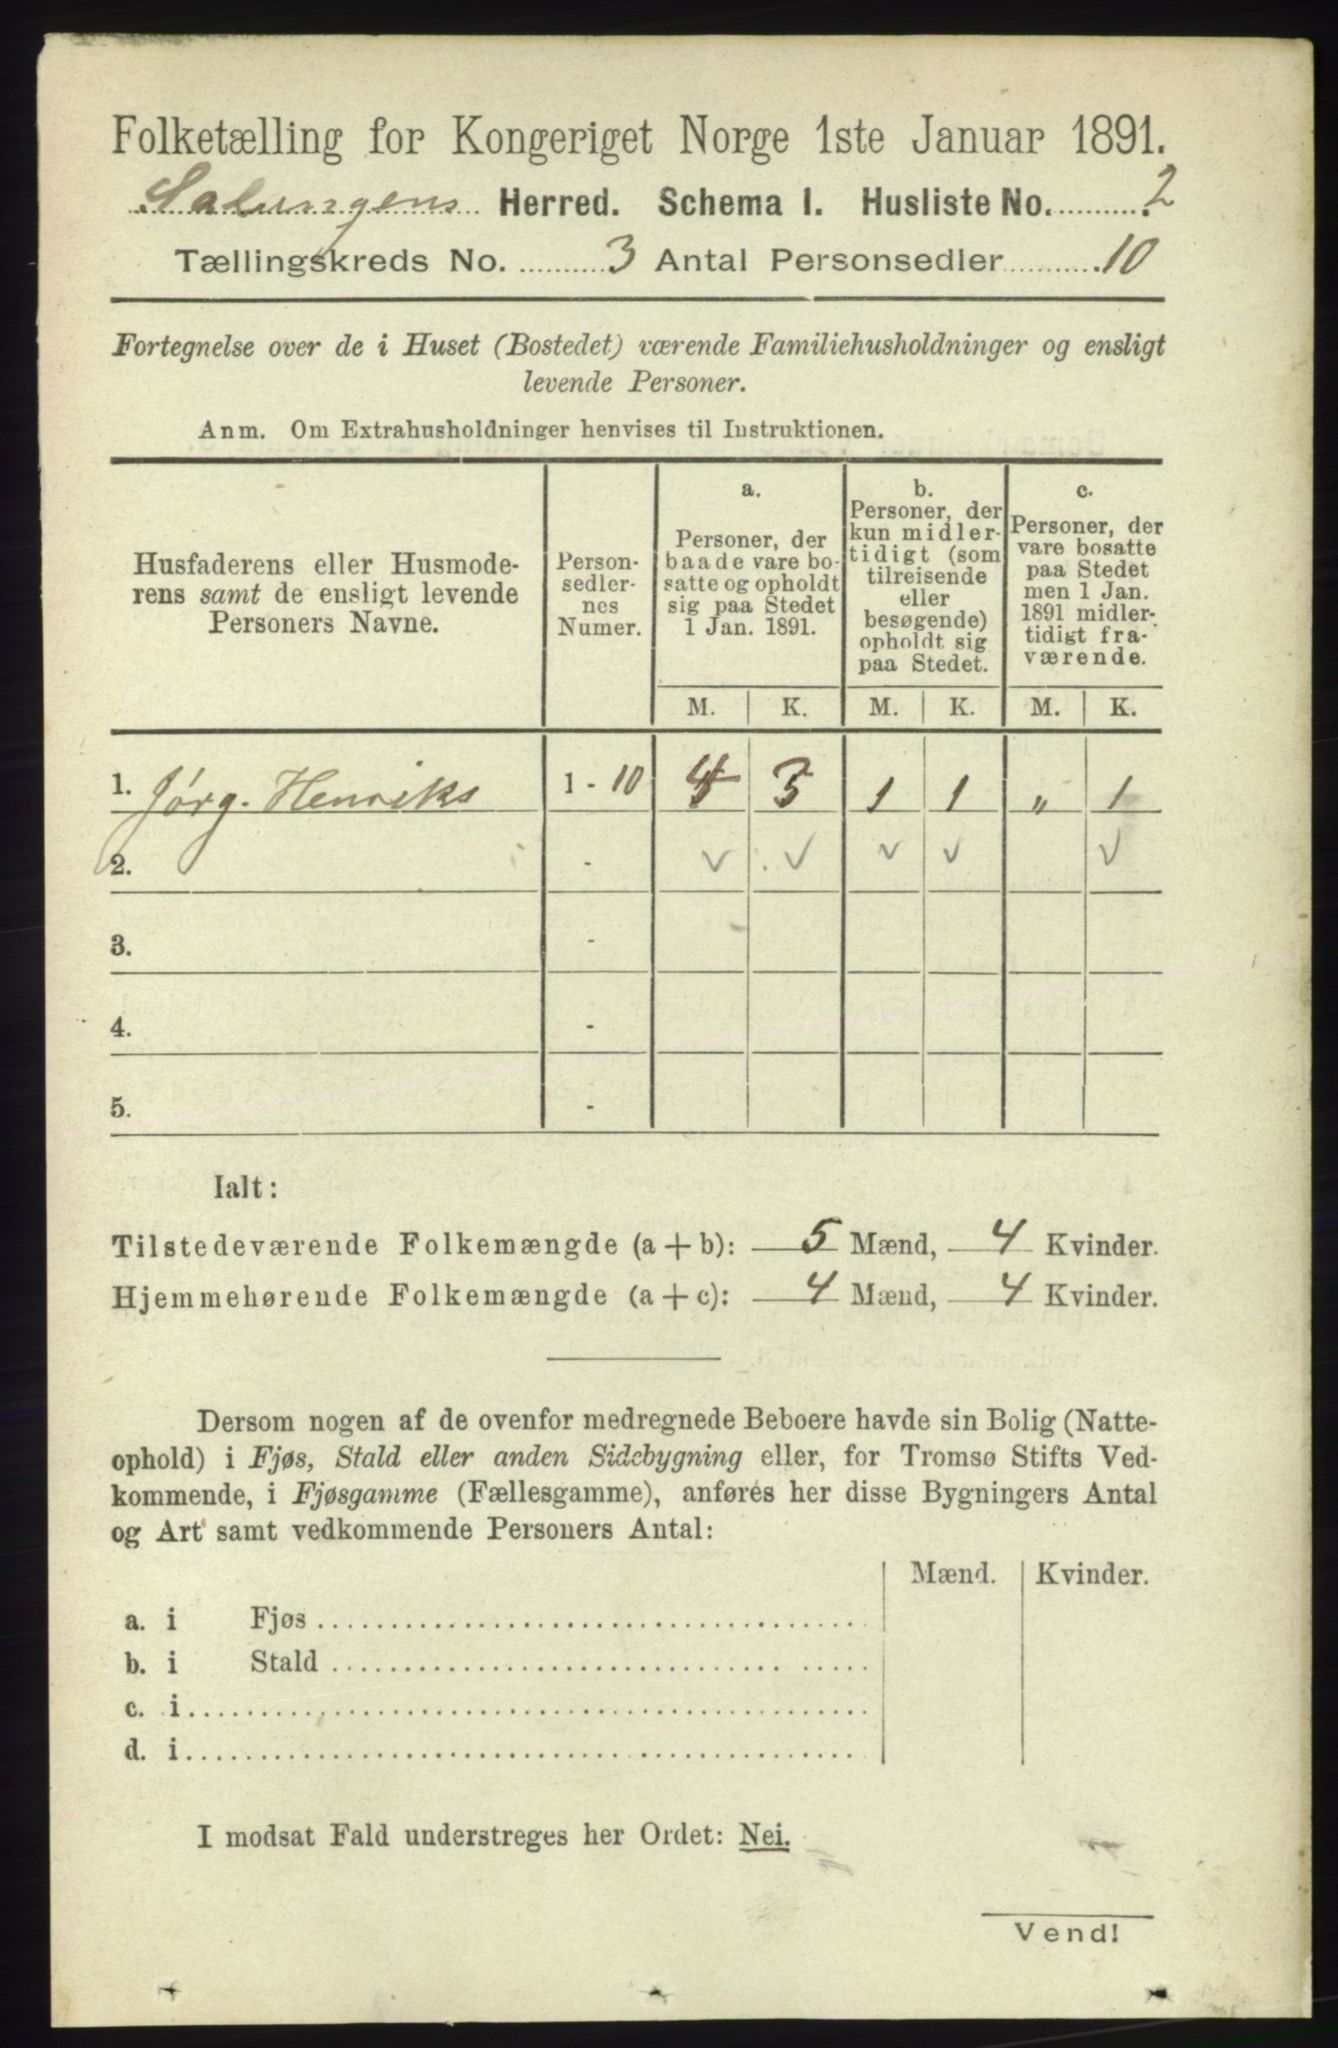 Folketælling for Kongeriget Norge 1ste Januar 1891.
Salangens Herred. Schema I. Husliste No. 2
Tællingskreds No. 3 Antal Personsedler 10
Fortegnelse over de i Huset (Bostedet) værende Familiehusholdninger og ensligt
levende Personer.
Anm. Om Extrahusholdninger henvises til Instruktionen.
Husfaderens eller Husmode-
rens samt de ensligt levende
Personers Navne.
Person-
sedler-
nes
Numer.
a.
Personer, der
baade vare bo-
satte og opholdt
sig paa Stedet
1 Jan. 1891.
b.
Personer, der
kun midler-
tidigt (som
tilreisende
eller
besøgende)
opholdt sig
paa Stedet.
c.
Personer, der
vare bosatte
paa Stedet
men 1 Jan.
1891 midler-
tidigt fra-
værende.
M. K. M. K. M. K.
1. Jørg. Henriks 1 - 10 4 3 1 1 „ 1
2. - v v v v v
3. -
4. -
5. -
Ialt:
Tilstedeværende Folkemængde (a + b): 5 Mænd, 4 Kvinder.
Hjemmehørende Folkemængde (a + c): 4 Mænd, 4 Kvinder.
Dersom nogen af de ovenfor medregnede Beboere havde sin Bolig (Natte-
ophold) i Fjøs, Stald eller anden Sidebygning eller, for Tromsø Stifts Ved-
kommende, i Fjøsgamme (Fællesgamme), anføres her disse Bygningers Antal
og Art samt vedkommende Personers Antal:
Mænd. Kvinder.
a. i Fjøs
b. i Stald
c. i
d. i
I modsat Fald understreges her Ordet: Nei.
Vend!